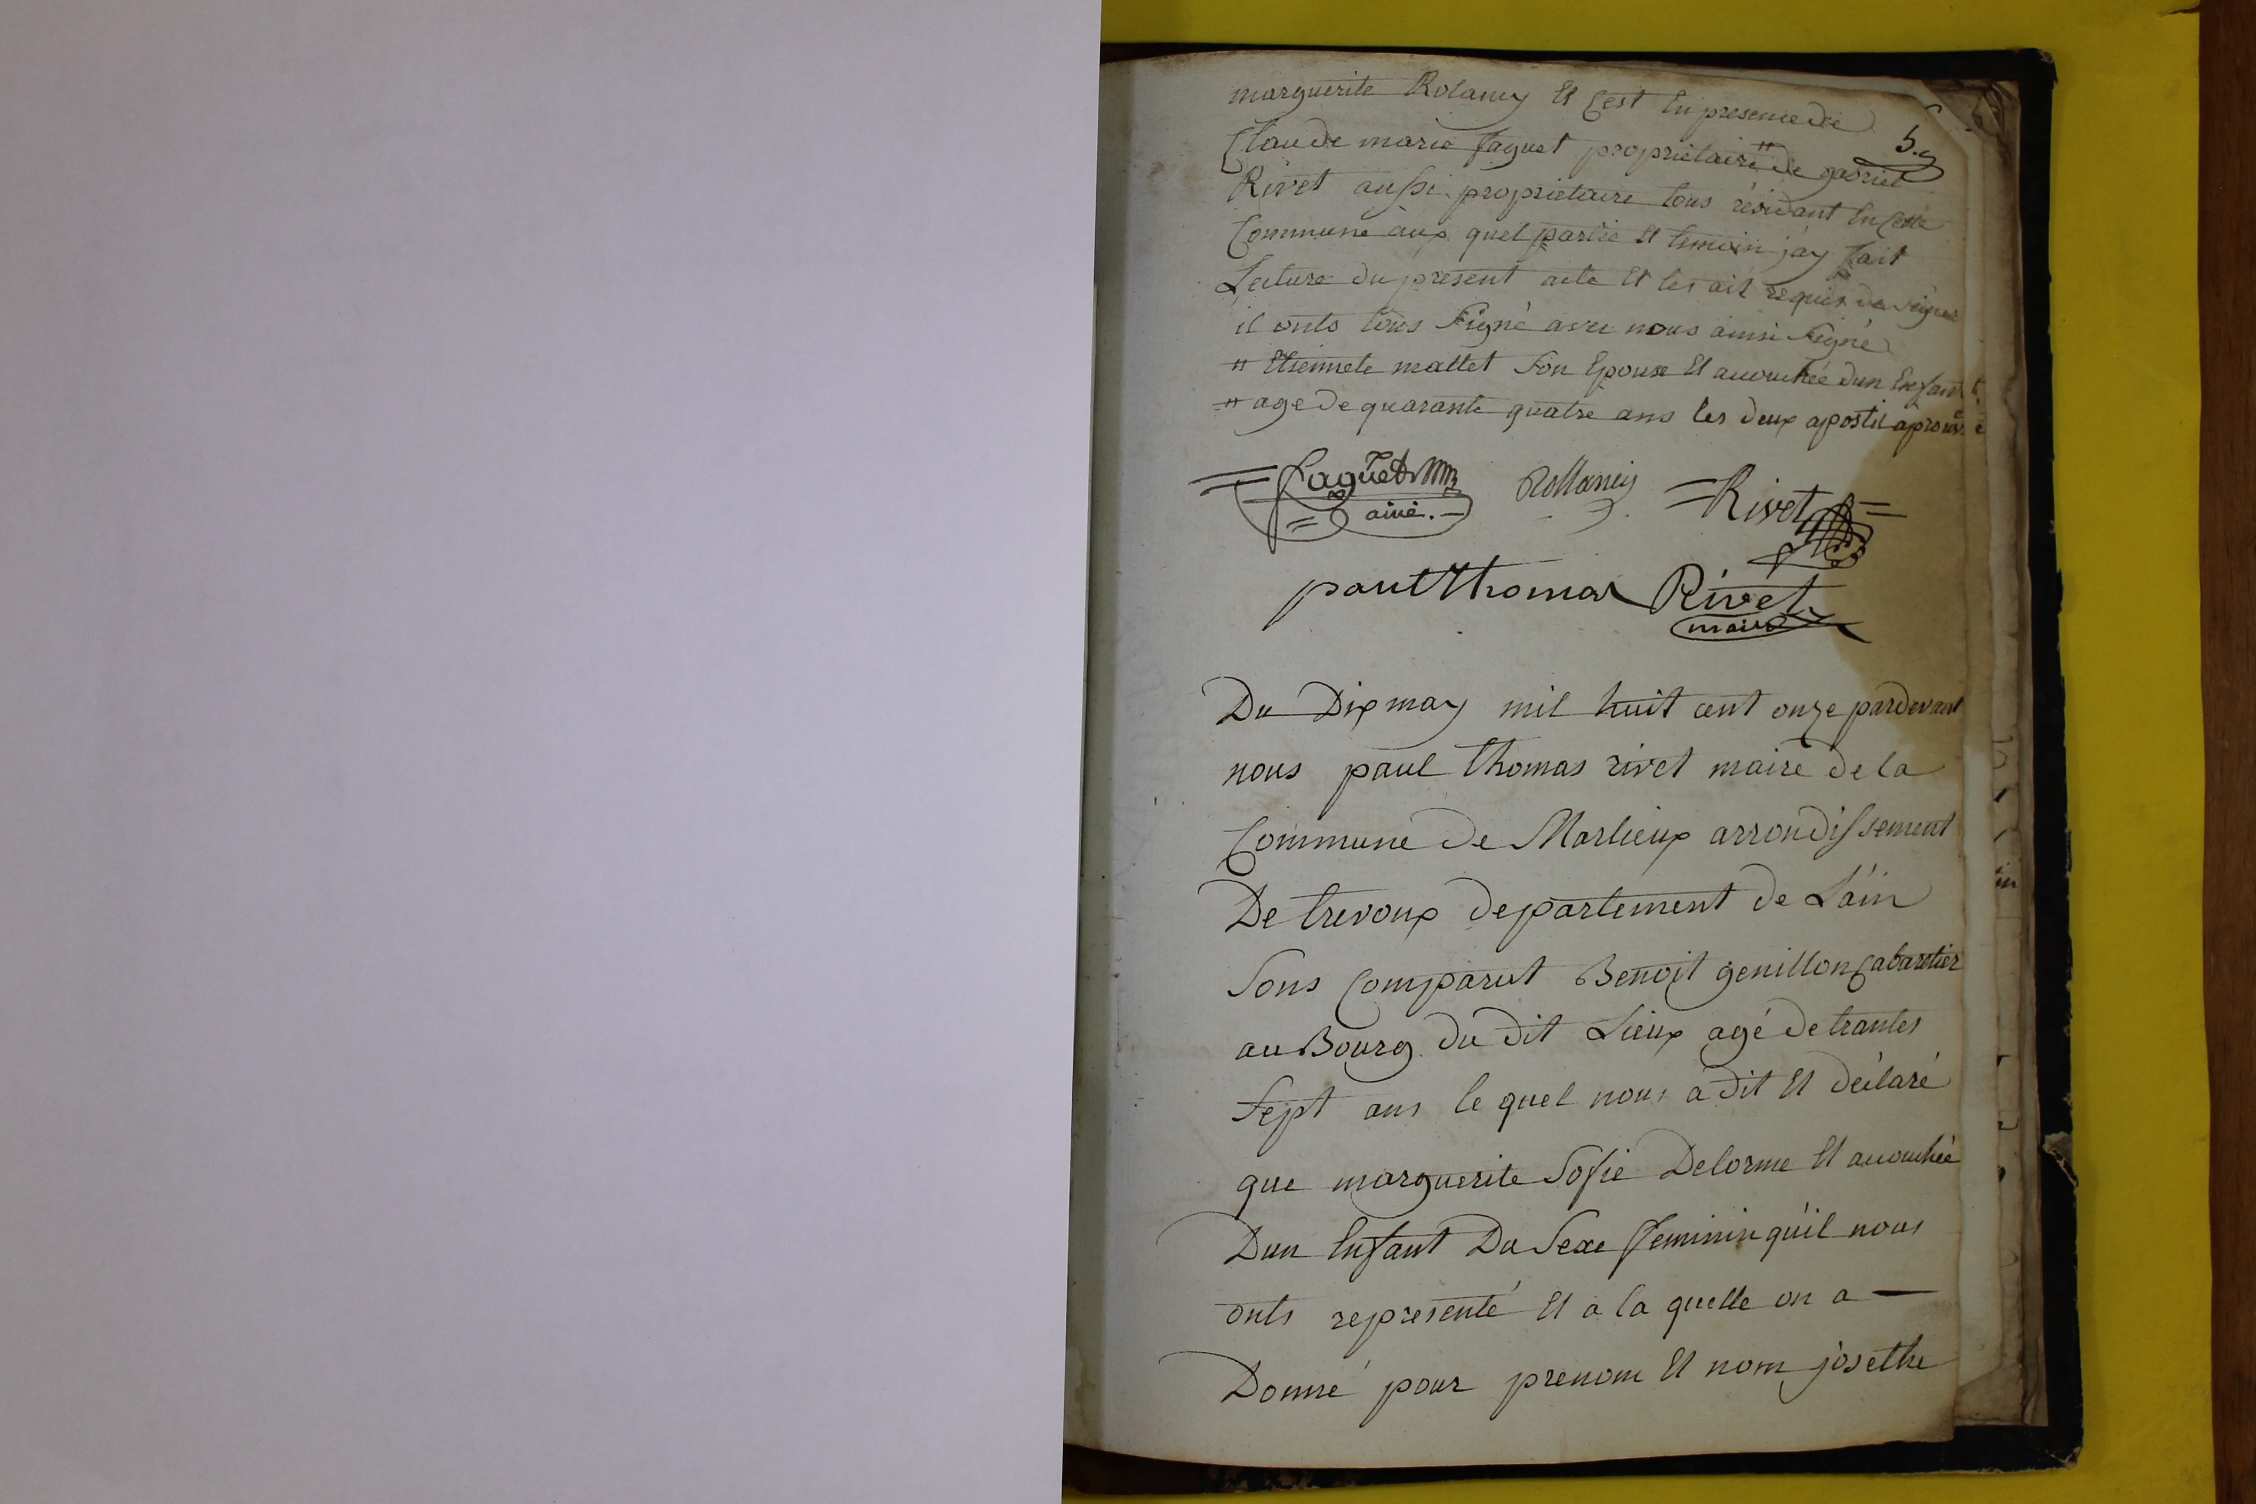 marguerite Rolancy Et Cest En presence de
5.
Claude marie faguet proprietaire " de gabriel
Rivet aussi proprietaire tous résidant En Cette
Commune aux quel partie Et temoin j'ay fait
Lecture du présent acte Et les ait requis de signer
il onts tous Signé avec nous ainsi Signé
" Etiennete mattet Son Epouse Et accouchée dun Enfant
" age de quarante quatre ans les deux apostil aprouvé
faguet
ainé.
Rollancy
Rivet
paul Thomas Rivet
maire
Du Dix may mil huit cent onze pardevant
nous paul thomas rivet maire de la
Commune de Marlieux arrondissement
De trevoux departement de L'ain
Sons Comparut Benoit genillon Cabaretier
au Bourg du dit Lieux agé de trantes
Sept ans le quel nous a dit Et déclaré
que marguerite Sofie Delorme Et accouchée
Dun Enfant Du Sexe feminin qu'il nous
onts representé Et a la quelle on a —
Donné pour prenom Et nom josethe